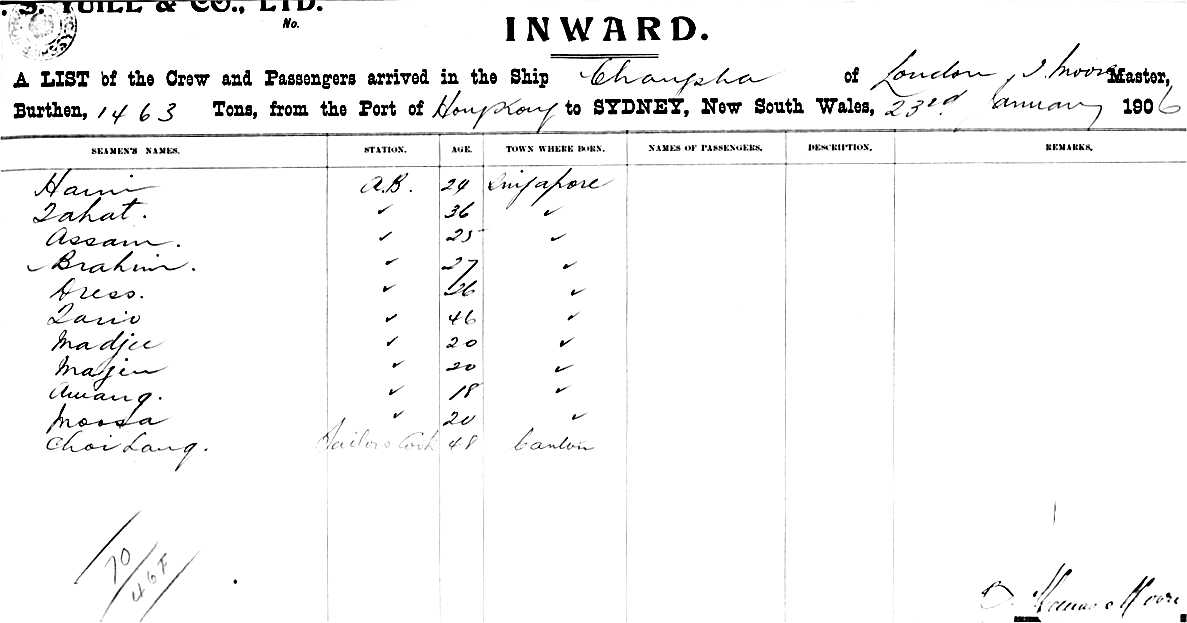 . S. YUILL & CO., LTD.
No.
INWARD.
A LIST of the Crew and Passengers arrived in the Ship Changsha of London, J. Moore Master,
Burthen, 1463 Tons, from the Port of Hong Kong to SYDNEY, New South Wales, 23rd January 1906
SEAMEN'S NAMES. STATION. AGE. TOWN WHERE BORN. NAMES OF PASSENGERS. DESCRIPTION. REMARKS.
A.B. 24 Singapore
Tahat. ✓ 36 ✓
Assam. ✓ 25 ✓
Brahim. ✓ 27 ✓
Dress. ✓ 26 ✓
✓ 46 ✓
Madjee ✓ 20 ✓
Majen ✓ 20 ✓
Awang. ✓ 18 ✓
Moosa ✓ 20 ✓
Choi Lang. Sailors Cook 48 Canton
Moore